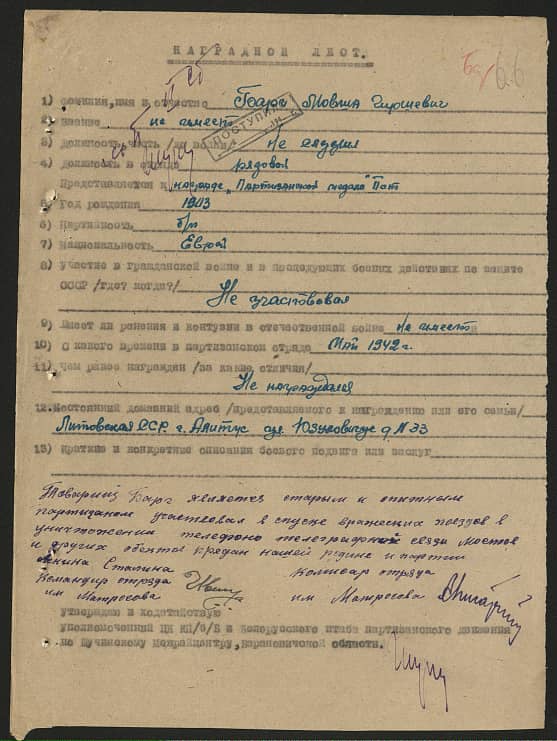 НАГРАДНОЙ ЛИСТ.
66
1) Фамилия, имя и отчество Барг Мовша Гиршевич
ПОСТУПИЛ
2) Звание не имеет
3) Должность, часть до войны Не служил
4) Должность в отряде рядовой
Представляется к награде „Партизанской медали"
5) Год рождения 1903
6) Партийность б/п
7) Национальность Еврей
8) Участие в гражданской войне и в последующих боевых действиях по защите
СССР /где? когда?/
Не участвовал
9) Имеет ли ранения и контузии в отечественной войне не имеет
10) С какого времени в партизанском отряде Май 1942 г.
11) Чем ранее награжден /за какие отличия/
Не награждался
12. Постоянный домашний адрес /представляемого к награждению или его семьи/
Литовская ССР. г. Алитус ул. д. № 33
13) Краткие и конкретные описания боевого подвига или заслуг
Товарищ Барг является старым и опытным
партизаном участвовал в спуске вражеских поездов в
уничтожении телефоно телеграфной связи мостов
и других предан нашей родине и партии
Ленина Сталина
Командир отряда комисар отряда
им Матросова им Матросова
Утверждаю и ходатайствую
уполномоченный ЦК КП/б/Б и Белорусского штаба партизанского движения
по Щучинскому межрайцентру, Барановичской области.